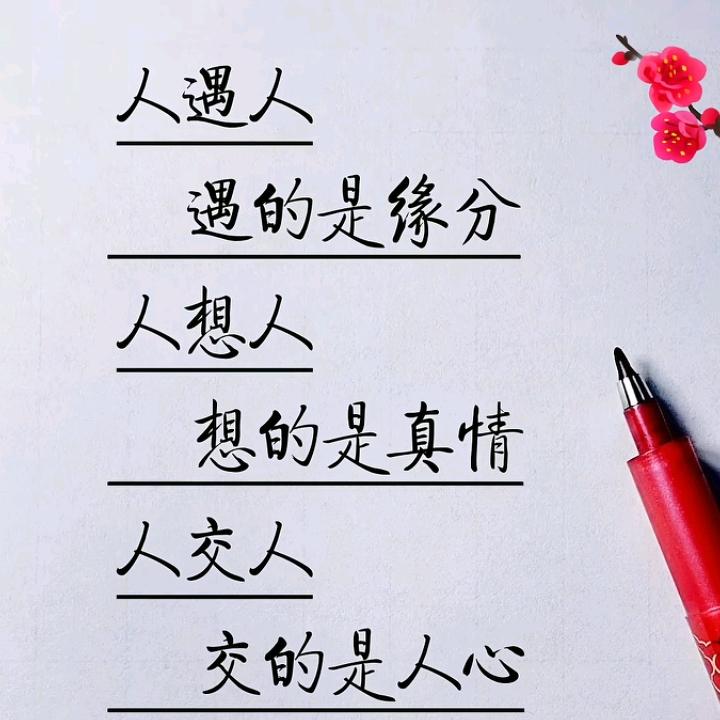 人遇人
遇的是缘分
人想人
想的是真情
人交人
交的是人心